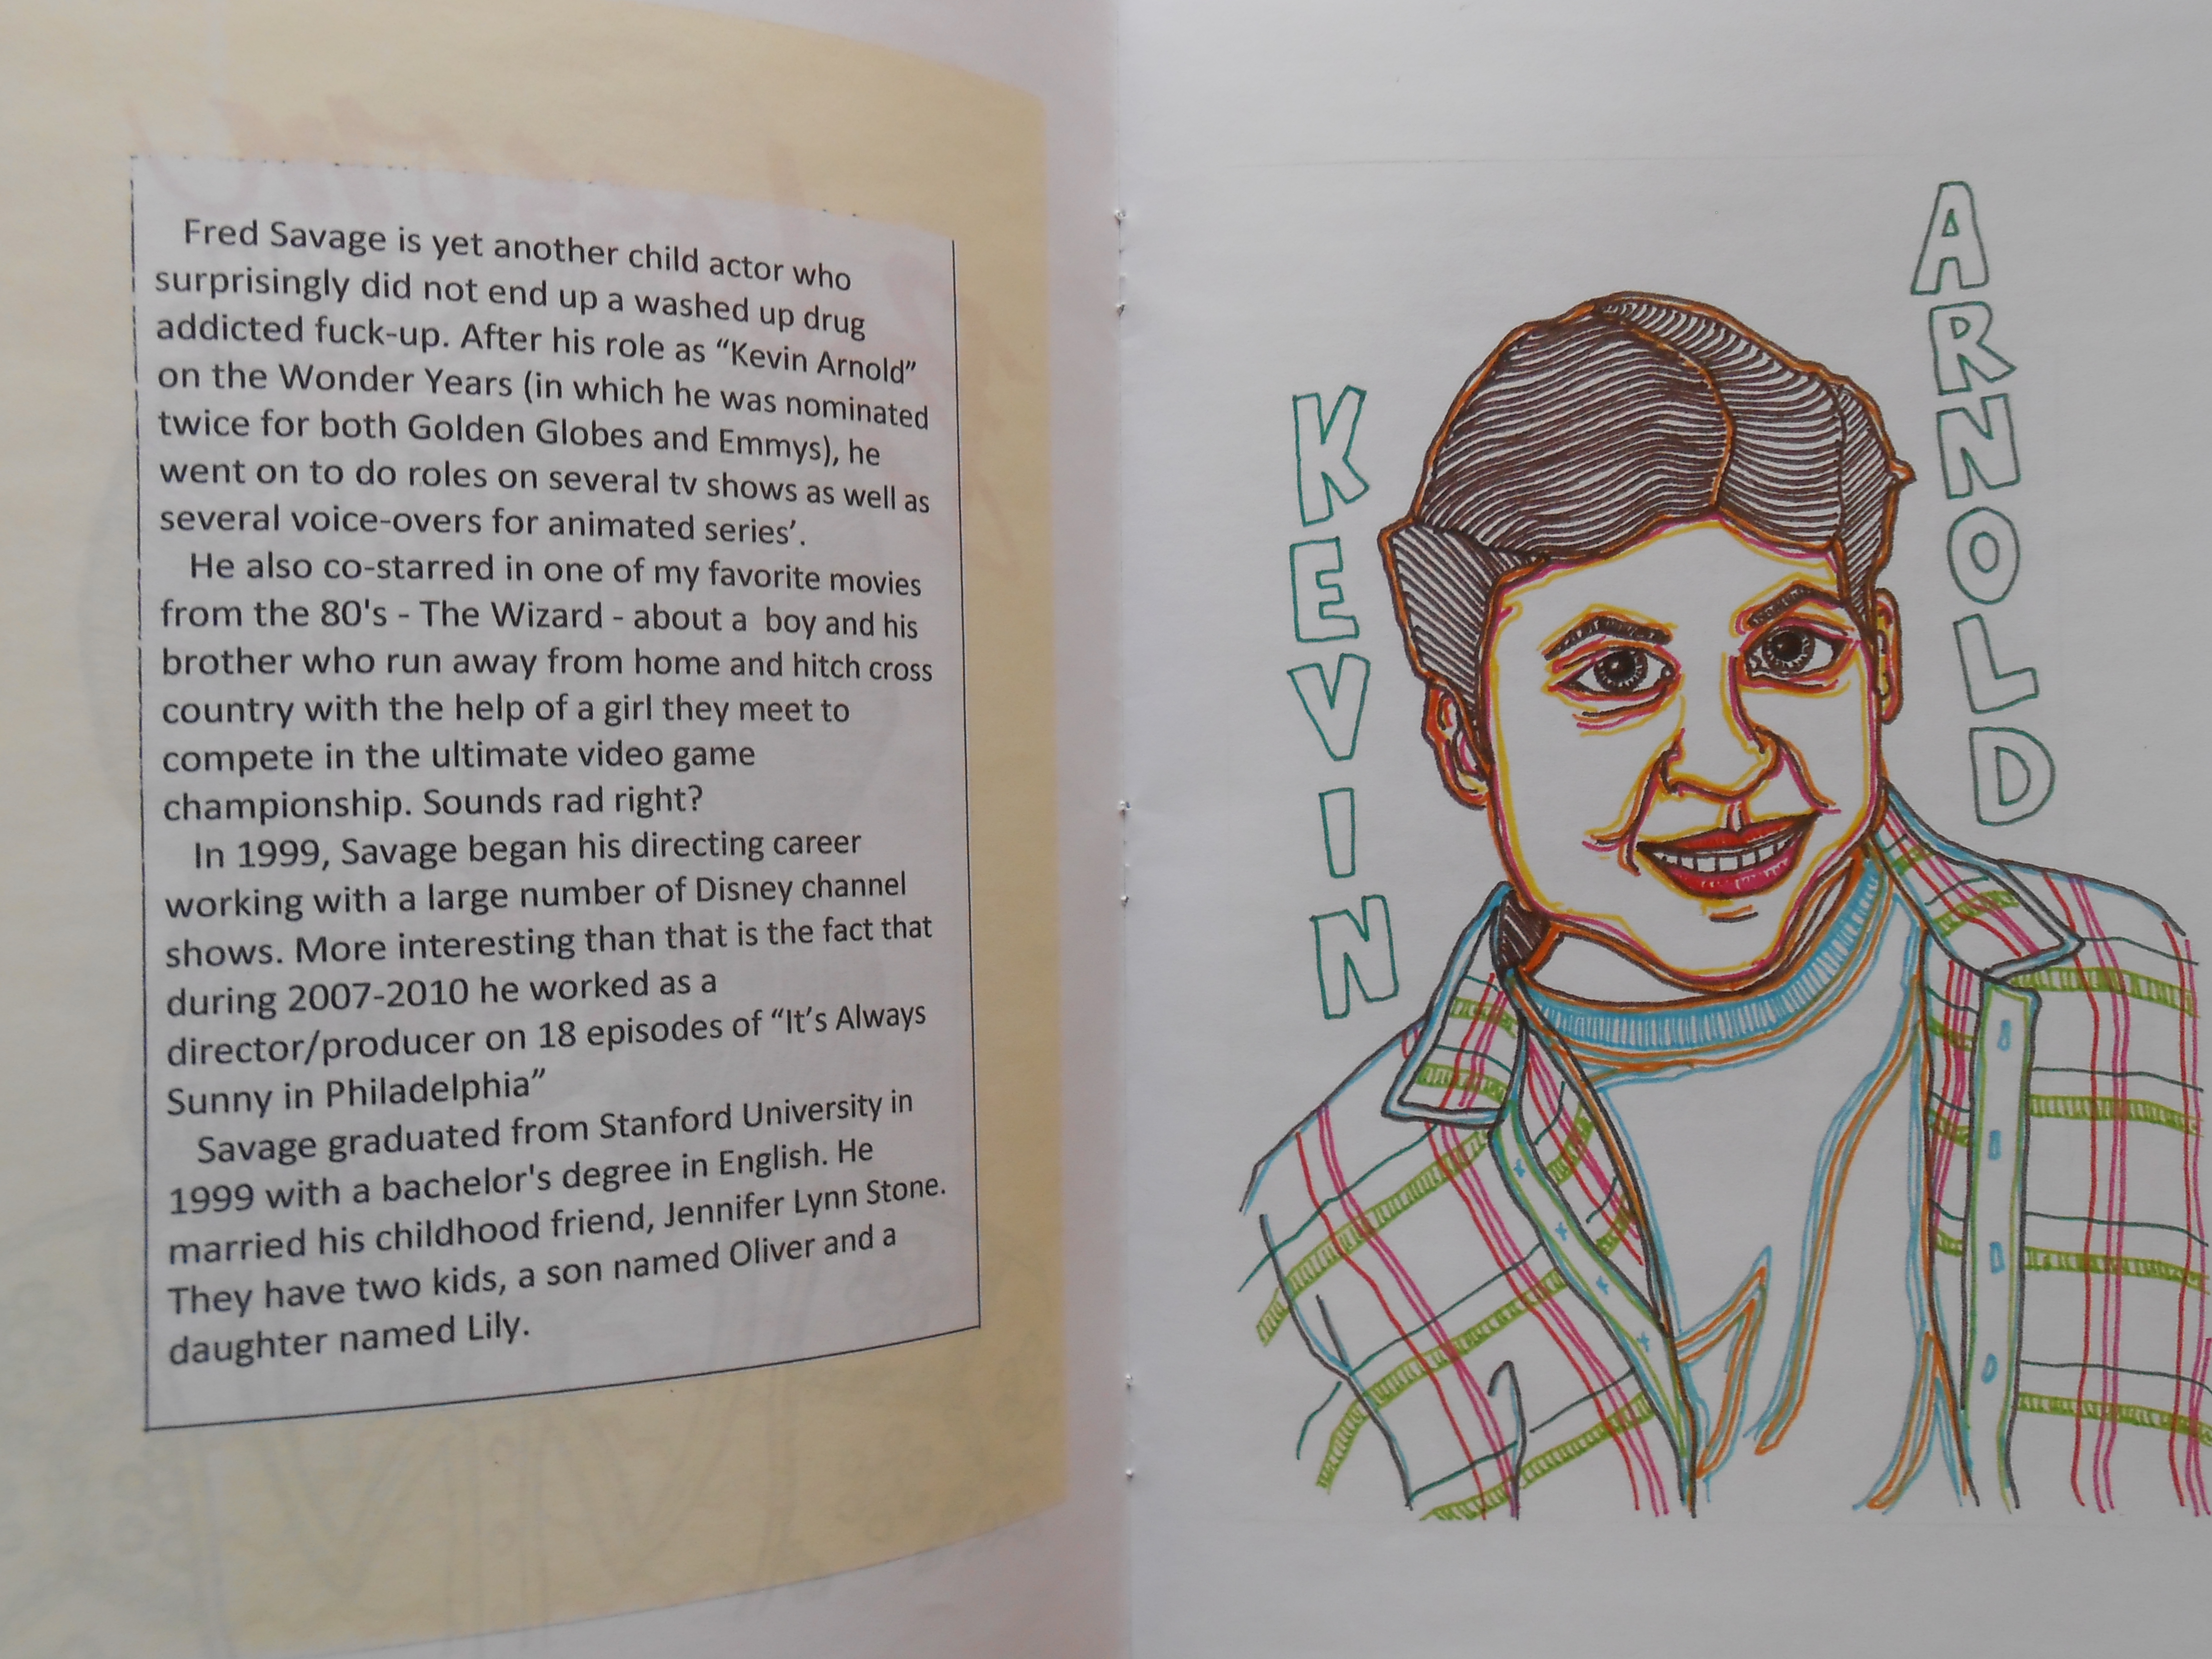 Fred Savage is yet another child actor who
surprisingly did not end up a washed up drug
addicted fuck-up. After his role as “Kevin Arnold”
on the Wonder Years (in which he was nominated
twice for both Golden Globes and Emmys), he
went on to do roles on several tv shows as well as
several voice-overs for animated series’.
He also co-starred in one of my favorite movies
from the 80's - The Wizard - about a boy and his
brother who run away from home and hitch cross
country with the help of a girl they meet to
compete in the ultimate video game
championship. Sounds rad right?
In 1999, Savage began his directing career
working with a large number of Disney channel
shows. More interesting than that is the fact that
during 2007-2010 he worked as a
director/producer on 18 episodes of “It’s Always
Sunny in Philadelphia”
Savage graduated from Stanford University in
1999 with a bachelor's degree in English. He
married his childhood friend, Jennifer Lynn Stone.
They have two kids, a son named Oliver and a
daughter named Lily.
KEVIN
ARNOLD